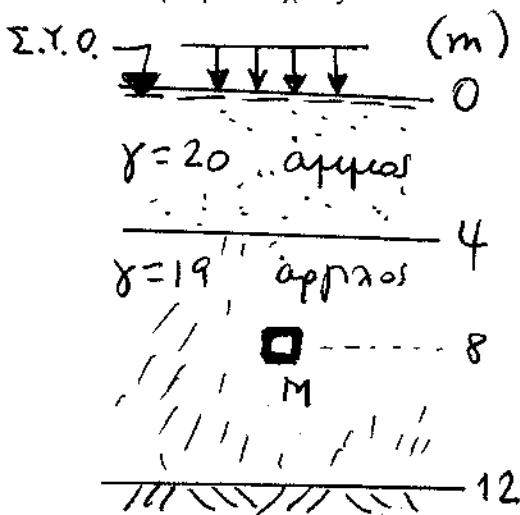 Σ.Υ.Ο. (m)
0
γ=20 άμμος
4
γ=19 άργιλος
8
M
12